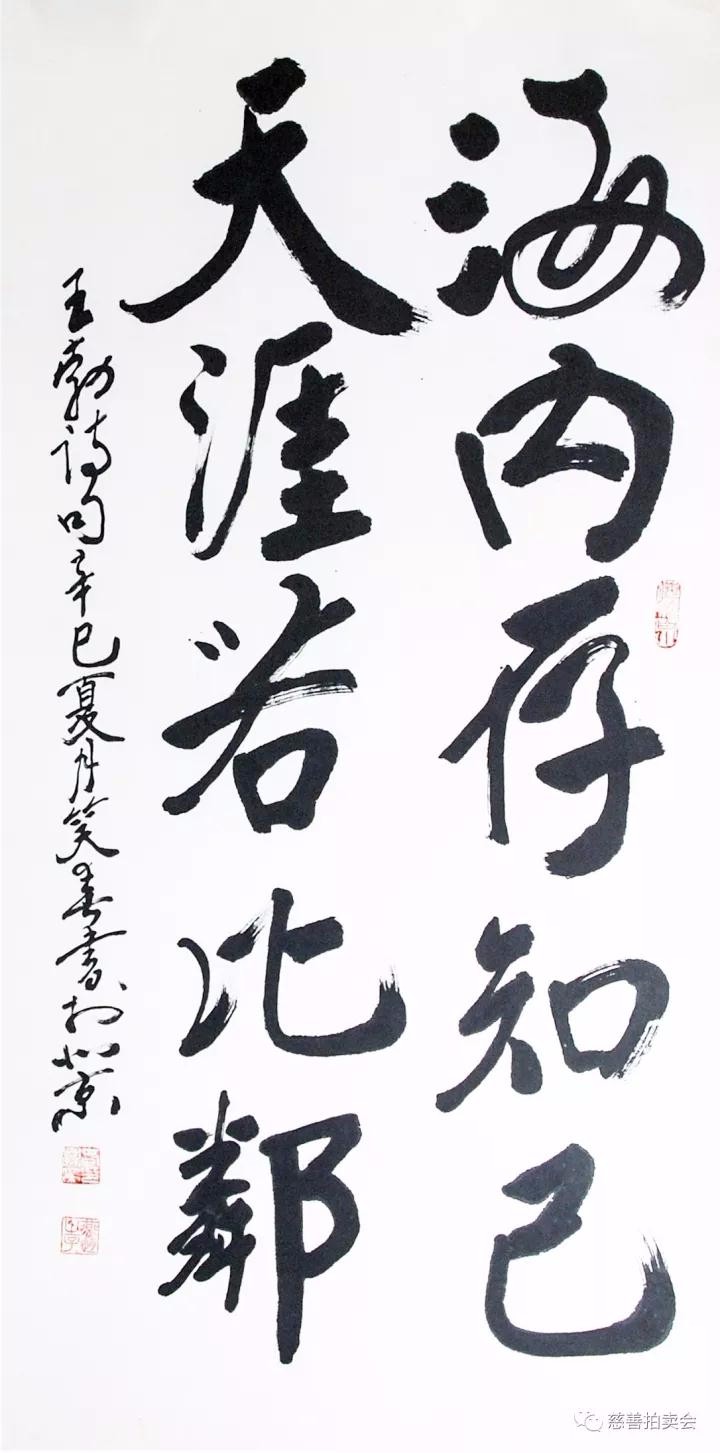 海内存知己
天涯若比鄰
王勃诗句辛巳夏月笑春書於北京
慈善拍卖会